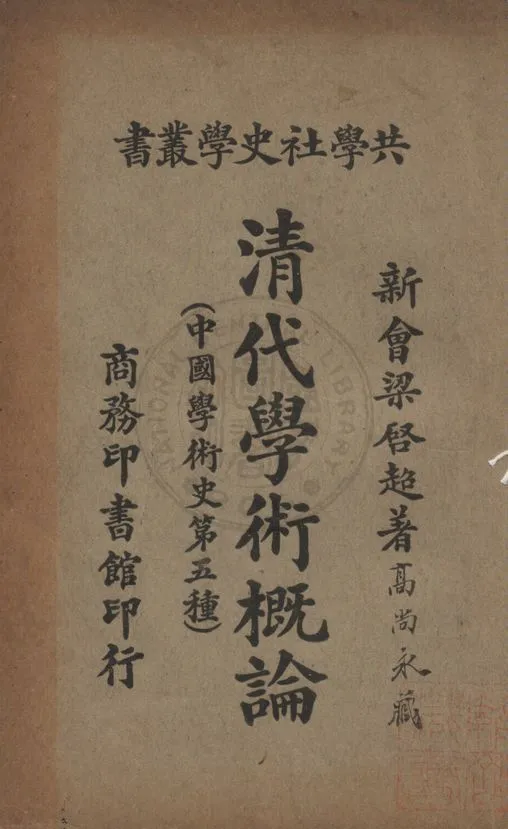 共學社史學叢書
新會梁啓超著
高尚永藏
清代學術概論
(中國學術史第五種)
商務印書館印行